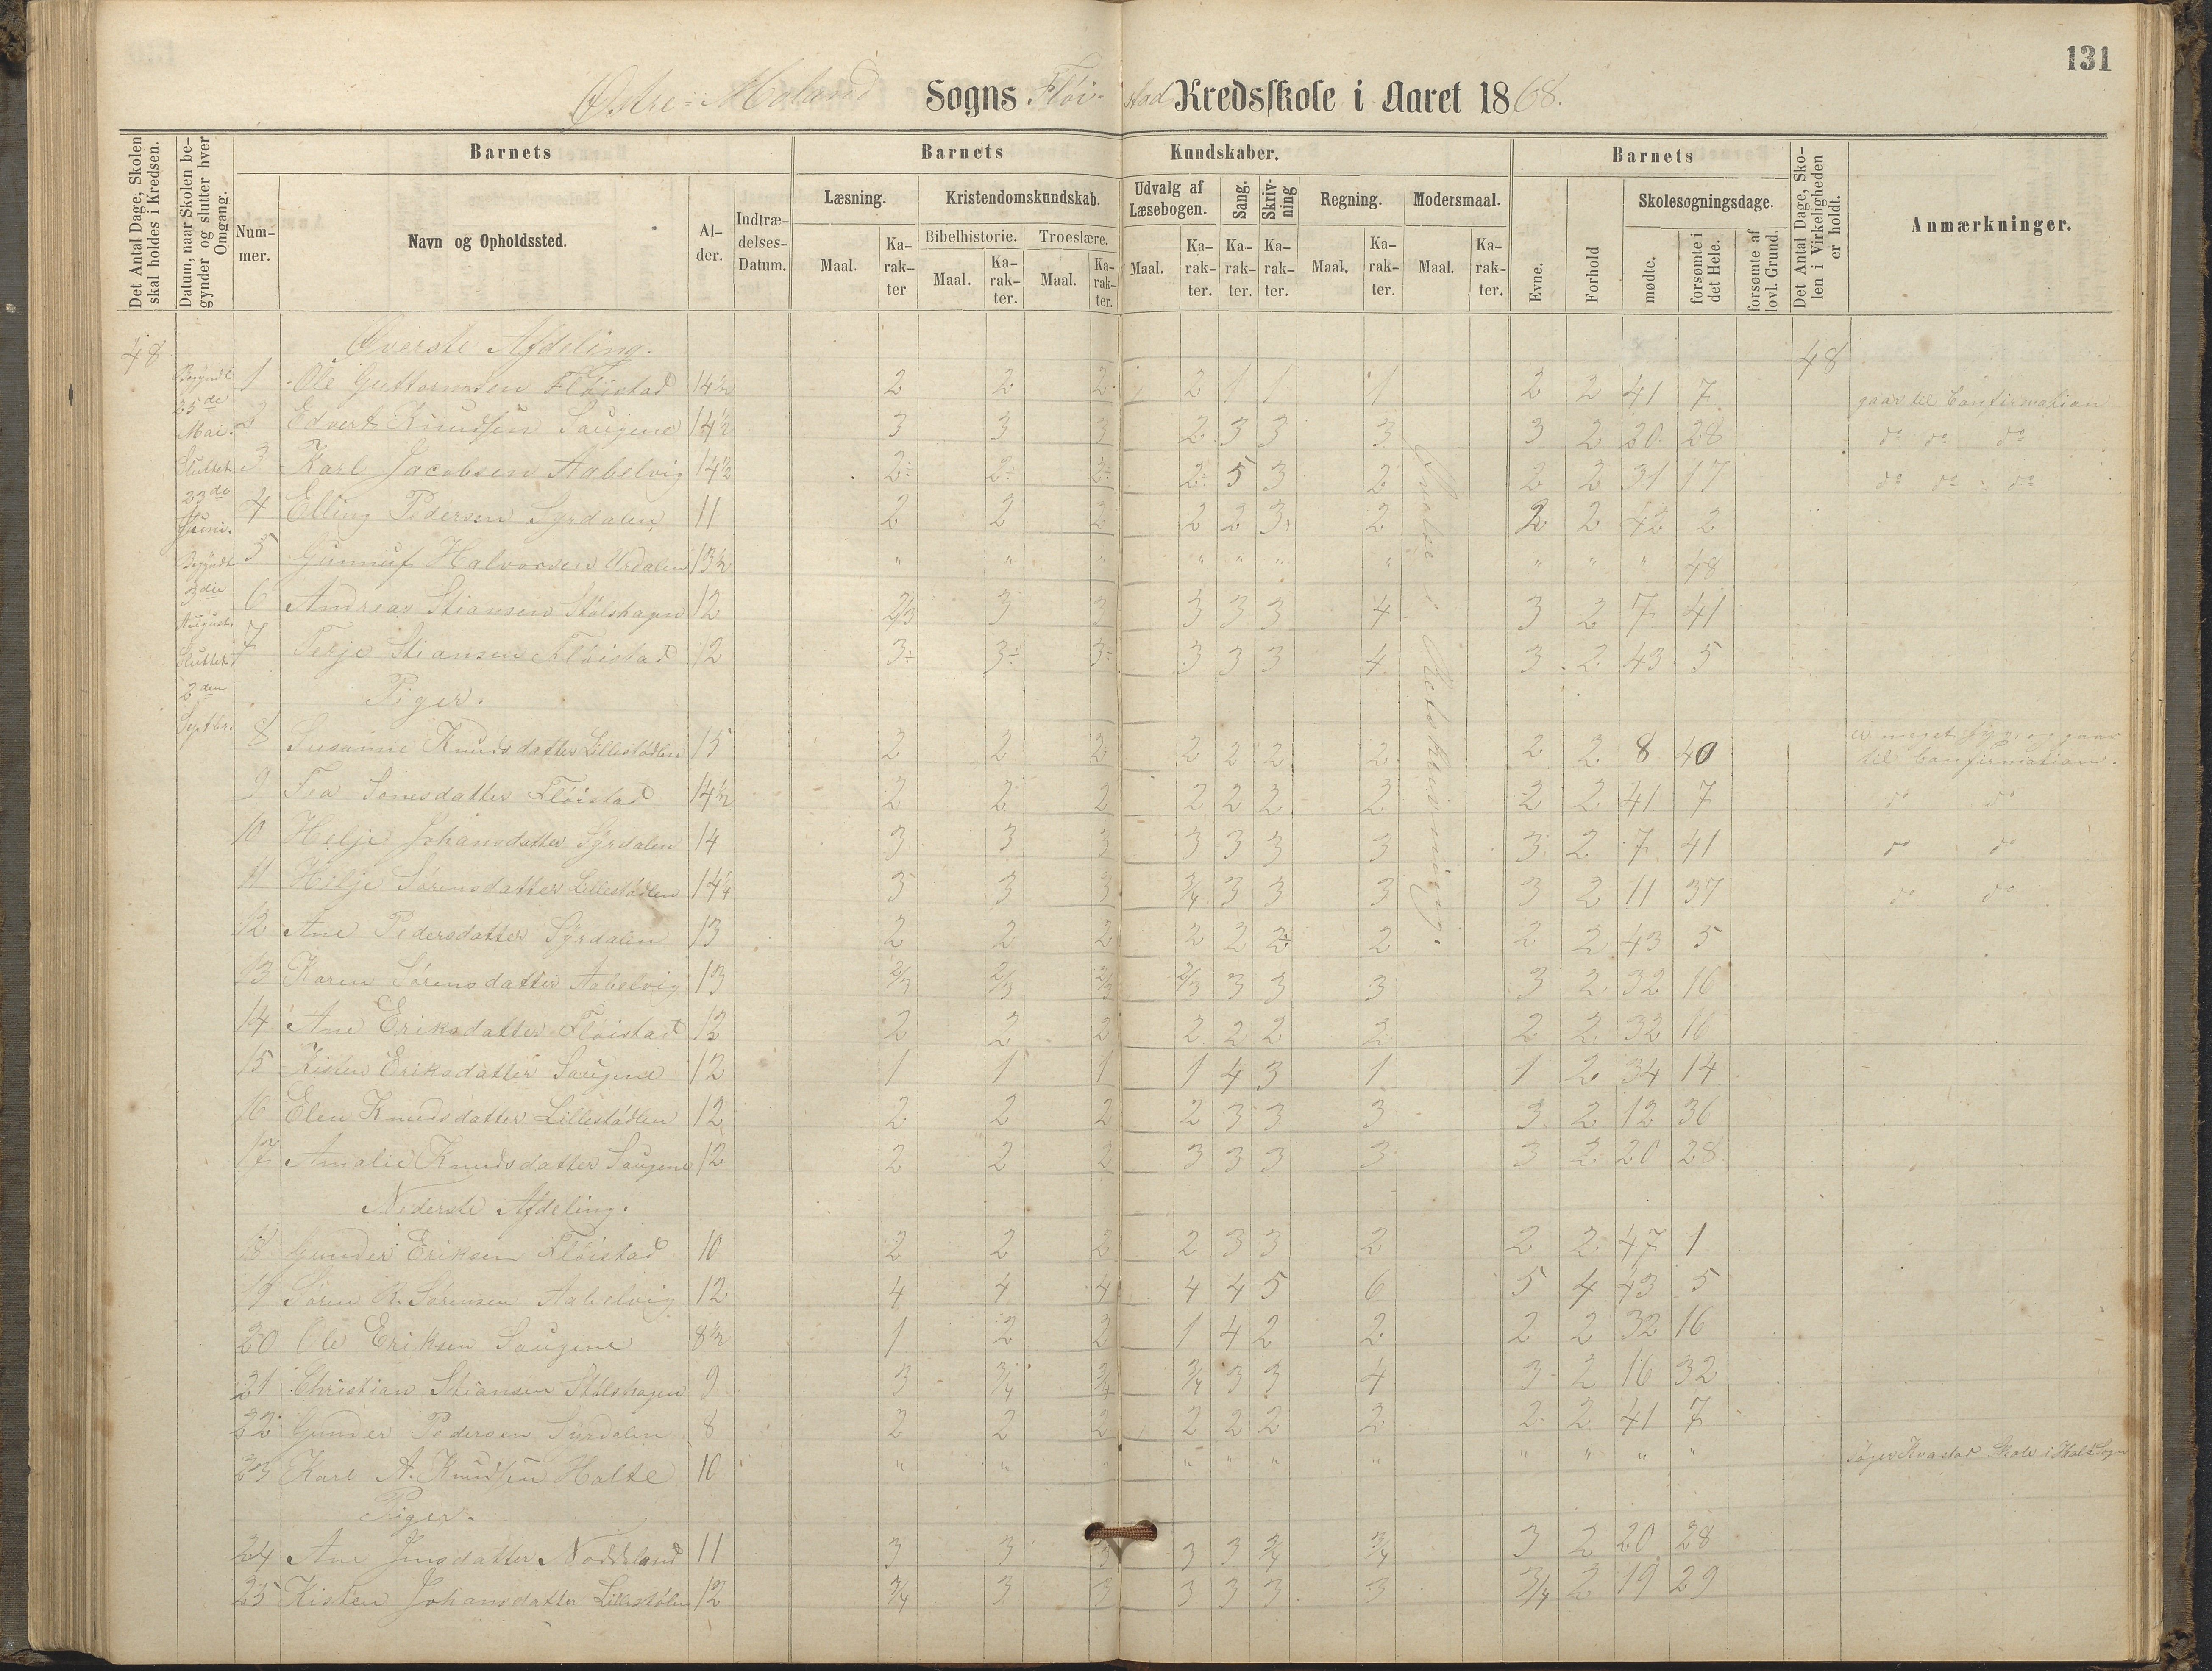 131
Østre-Moland Sogns Flöi- stad Kredsskole i Aaret 1868.
Det Antal Dage, Skolen skal holdes i Kredsen.
Datum, naar Skolen begynder og slutter hver Omgang.
Barnets
Nummer.
Navn og Opholdssted.
Alder.
Indtrædelses-Datum.
Barnets Kundskaber.
Læsning.
Maal. Karakter
Kristendomskundskab.
Bibelhistorie. Troeslære.
Maal. Karakter. Maal. Karakter.
Udvalg af Læsebogen.
Maal. Karakter.
Sang. Karakter.
Skrivning Karakter.
Regning.
Maal. Karakter.
Modersmaal.
Maal. Karakter.
Barnets
Evne.
Forhold
Skolesøgningsdage.
mødte. forsømte i det Hele. forsømte af lovl. Grund.
Det Antal Dage, Skolen i Virkeligheden er holdt.
Anmærkninger.
48 Øverste Afdeling. 48
Begyndt 25de Mai. Sluttet 23de Juni. Begyndt 3die August. Sluttet 2den Septbr.
Øvelse i Retskrivning.
1 Ole Guttormsen Flöistad 14½ 2 2 2 2 1 1 1 2 2 41 7 gaar til Confirmation
2 Edvert Knudsen Saugene 14½ 3 3 3 2 3 3 3 3 2 20 28 do do do
3 Karl Jacobsen Aabelvig 14½ 2÷ 2÷ 2÷ 2÷ 5 3 2 2 2 31 17 do do do
4 Elling Pedersen Syrdalen 11 2 2 2 2 2 3 2 2 2 42 2
5 Gunnuf Halvorsen Urdalen 13½ " " " " " " " " " " 48
6 Andreas Stiansen Stölshagen 12 2/3 3 3 3 3 3 4 3 2 7 41
7 Terje Stiansen Flöistad 12 3÷ 3÷ 3÷ 3 3 3 4 3 2 43 5
Piger.
8 Susanne Knudsdatter Lillestödlen 15 2 2 2 2 2 2 2 2 2 8 40 er meget syg og gaar til Confirmation.
9 Tea Jensdatter Flöistad 14½ 2 2 2 2 2 2 2 2 2 41 7 do do
10 Helje Johansdatter Syrdalen 14 3 3 3 3 3 3 3 3 2 7 41 do do
11 Hilje Sörensdatter Lillestödlen 14¼ 3 3 3 3/4 3 3 3 3 2 11 37 do do
12 Ane Pedersdatter Syrdalen 13 2 2 2 2 2 2÷ 2 2 2 43 5
13 Karen Sörensdatter Aabelvig 13 2/3 2/3 2/3 2/3 3 3 3 3 2 32 16
14 Ane Eriksdatter Flöistad 12 2 2 2 2 2 2 2 2 2 32 16
15 Kisten Eriksdatter Saugene 12 1 1 1 1 4 3 1 1 2 34 14
16 Elen Knudsdatter Lillestödlen 12 2 2 2 2 3 3 3 3 2 12 36
17 Amalie Knudsdatter Saugene 12 2 2 2 3 3 3 3 3 2 20 28
Nederste Afdeling.
18 Gunder Eriksen Flöistad 10 2 2 2 2 3 3 2 2 2 47 1
19 Sören R. Sörensen Aabelvig 12 4 4 4 4 4 5 6 5 4 43 5
20 Ole Eriksen Saugene 8½ 1 2 2 1 4 2 2 2 2 32 16
21 Christian Stiansen Stölshagen 9 3 3/4 3/4 3/4 3 3 4 3 2 16 32
22 Gunder Pedersen Syrdalen 8 2 2 2 2 2 2 2 2 2 41 7
23 Karl A. Knudsen Holte 10 " " " " " " " " " " " søger Kvastad Skole i Holt Sogn
Piger.
24 Ane Jensdatter Noddeland 11 3 3 3 3 3 3/4 3/4 3 2 20 28
25 Kisten Johansdatter Lillestölen 12 3/4 3 3 3 3 3 3 3/4 2 19 29